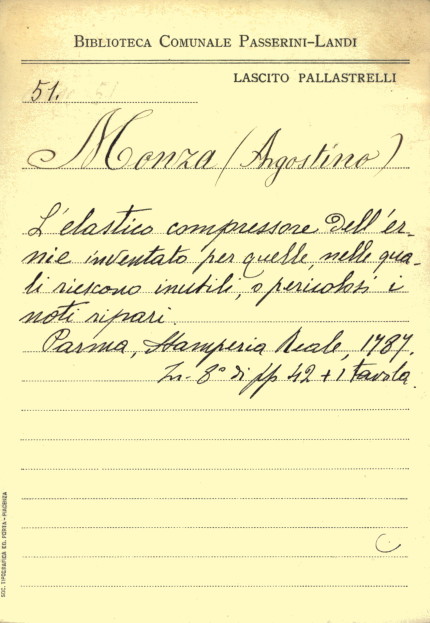 BIBLIOTECA COMUNALE PASSERINI-LANDI
LASCITO PALLASTRELLI
51.
Monza (Agostino)
L'elastico compressore dell'er-
nie inventato per quelle, nelle qua-
li riescono inutili, o pericolosi i
noti ripari.
Parma, Stamperia Reale, 1787.
In-8° di pp 42 + 1 tavola.
SOC. TIPOGRAFICA ED. PORTA - PIACENZA